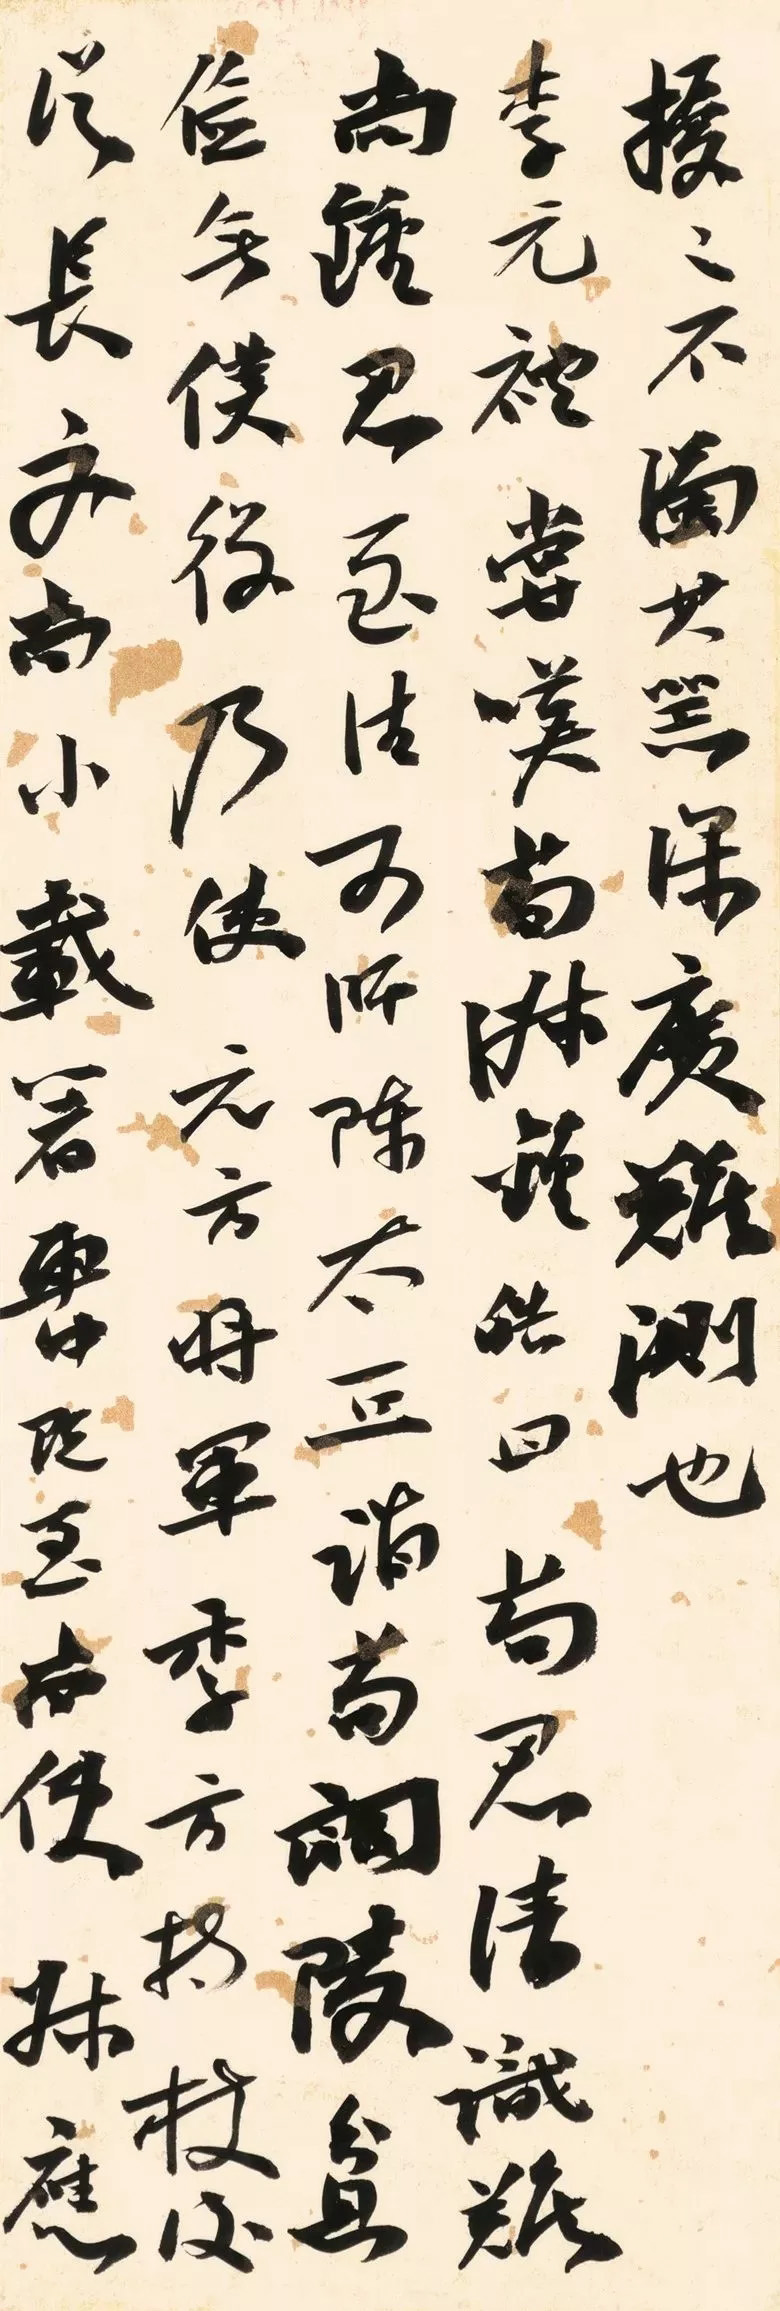 擾之不濁其器深廣難測也
李元禮嘗嘆荀淑鍾皓曰荀君清識難
尚鍾君至德可師陳太丘詣荀朗陵貧
儉無僕役乃使元方將軍季方持杖後
從長文尚小載著車中既至荀使叔應